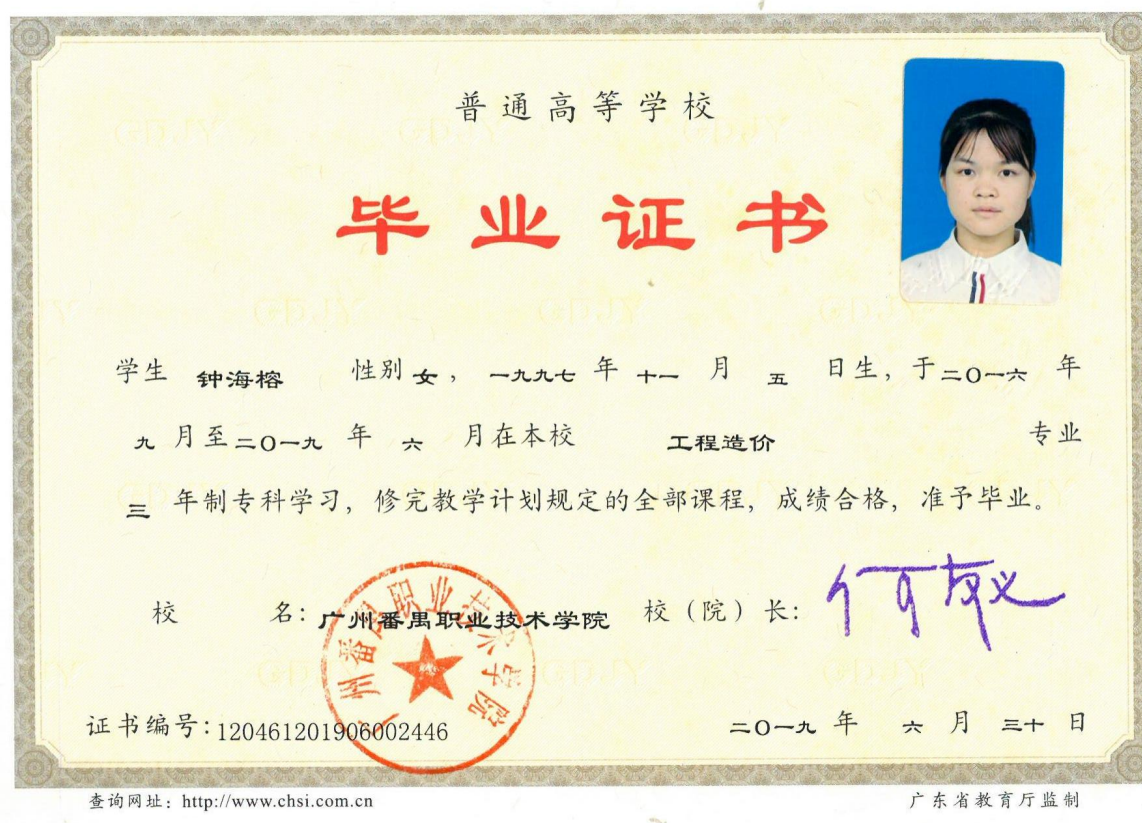 普通高等学校
毕业证书
学生 钟海榕 性别 女，一九九七 年 十一 月 五 日生，于二〇一六 年
九 月至二〇一九 年 六 月在本校 工程造价 专业
三 年制专科学习，修完教学计划规定的全部课程，成绩合格，准予毕业。
校 名：广州番禺职业技术学院 校（院）长：何友义
广州番禺职业技术学院
证书编号：120461201906002446 二〇一九 年 六 月 三十 日
查询网址：http://www.chsi.com.cn 广东省教育厅监制